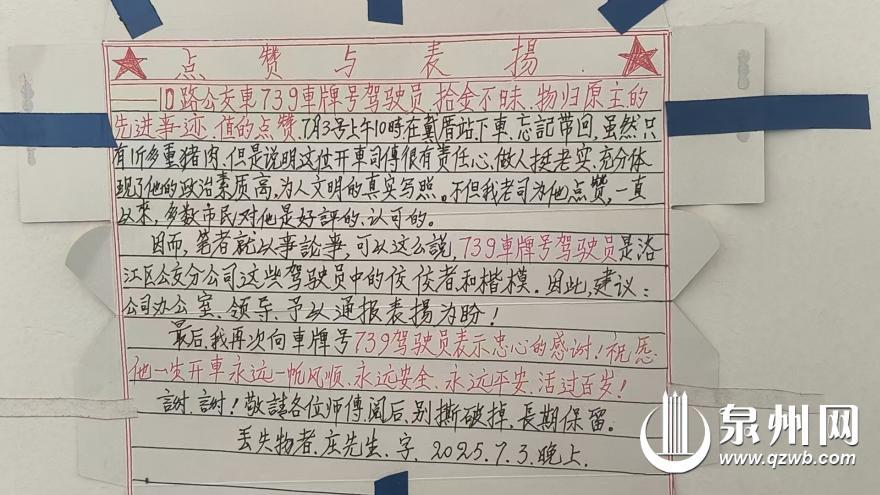 点赞与表揚
——10路公交車739車牌号驾驶员、拾金不昧、物归原主的
先进事迹、值的点赞、7月3号上午10時、在戴厝站、下車、忘記带回,虽然只
有1斤多重猪肉,但是说明这位开車司傅很有责任心、做人挺老实、充分体
现了他的政治素质高、为人文明的真实写照。不但我老司为他点赞,一直
以來,多数市民对他是好評的、认可的。
因而,笔者就以事論事,可以这么説,739車牌号驾驶员是洛
江区公交分公司这些驾驶员中的佼佼者和楷模。因此,建议:
公司办公室、领导、予以通报表揚为盼!
最后、我再次向車牌号739驾驶员表示忠心的感谢!祝愿
他一生开車永远一帆风顺、永远安全、永远平安、活过百岁!
謝、謝!敬請各位师傅阅后、别撕破掉、長期保留。
丢失物者、庄先生、字、2025.7.3.晚上.
泉州网
www.qzwb.com